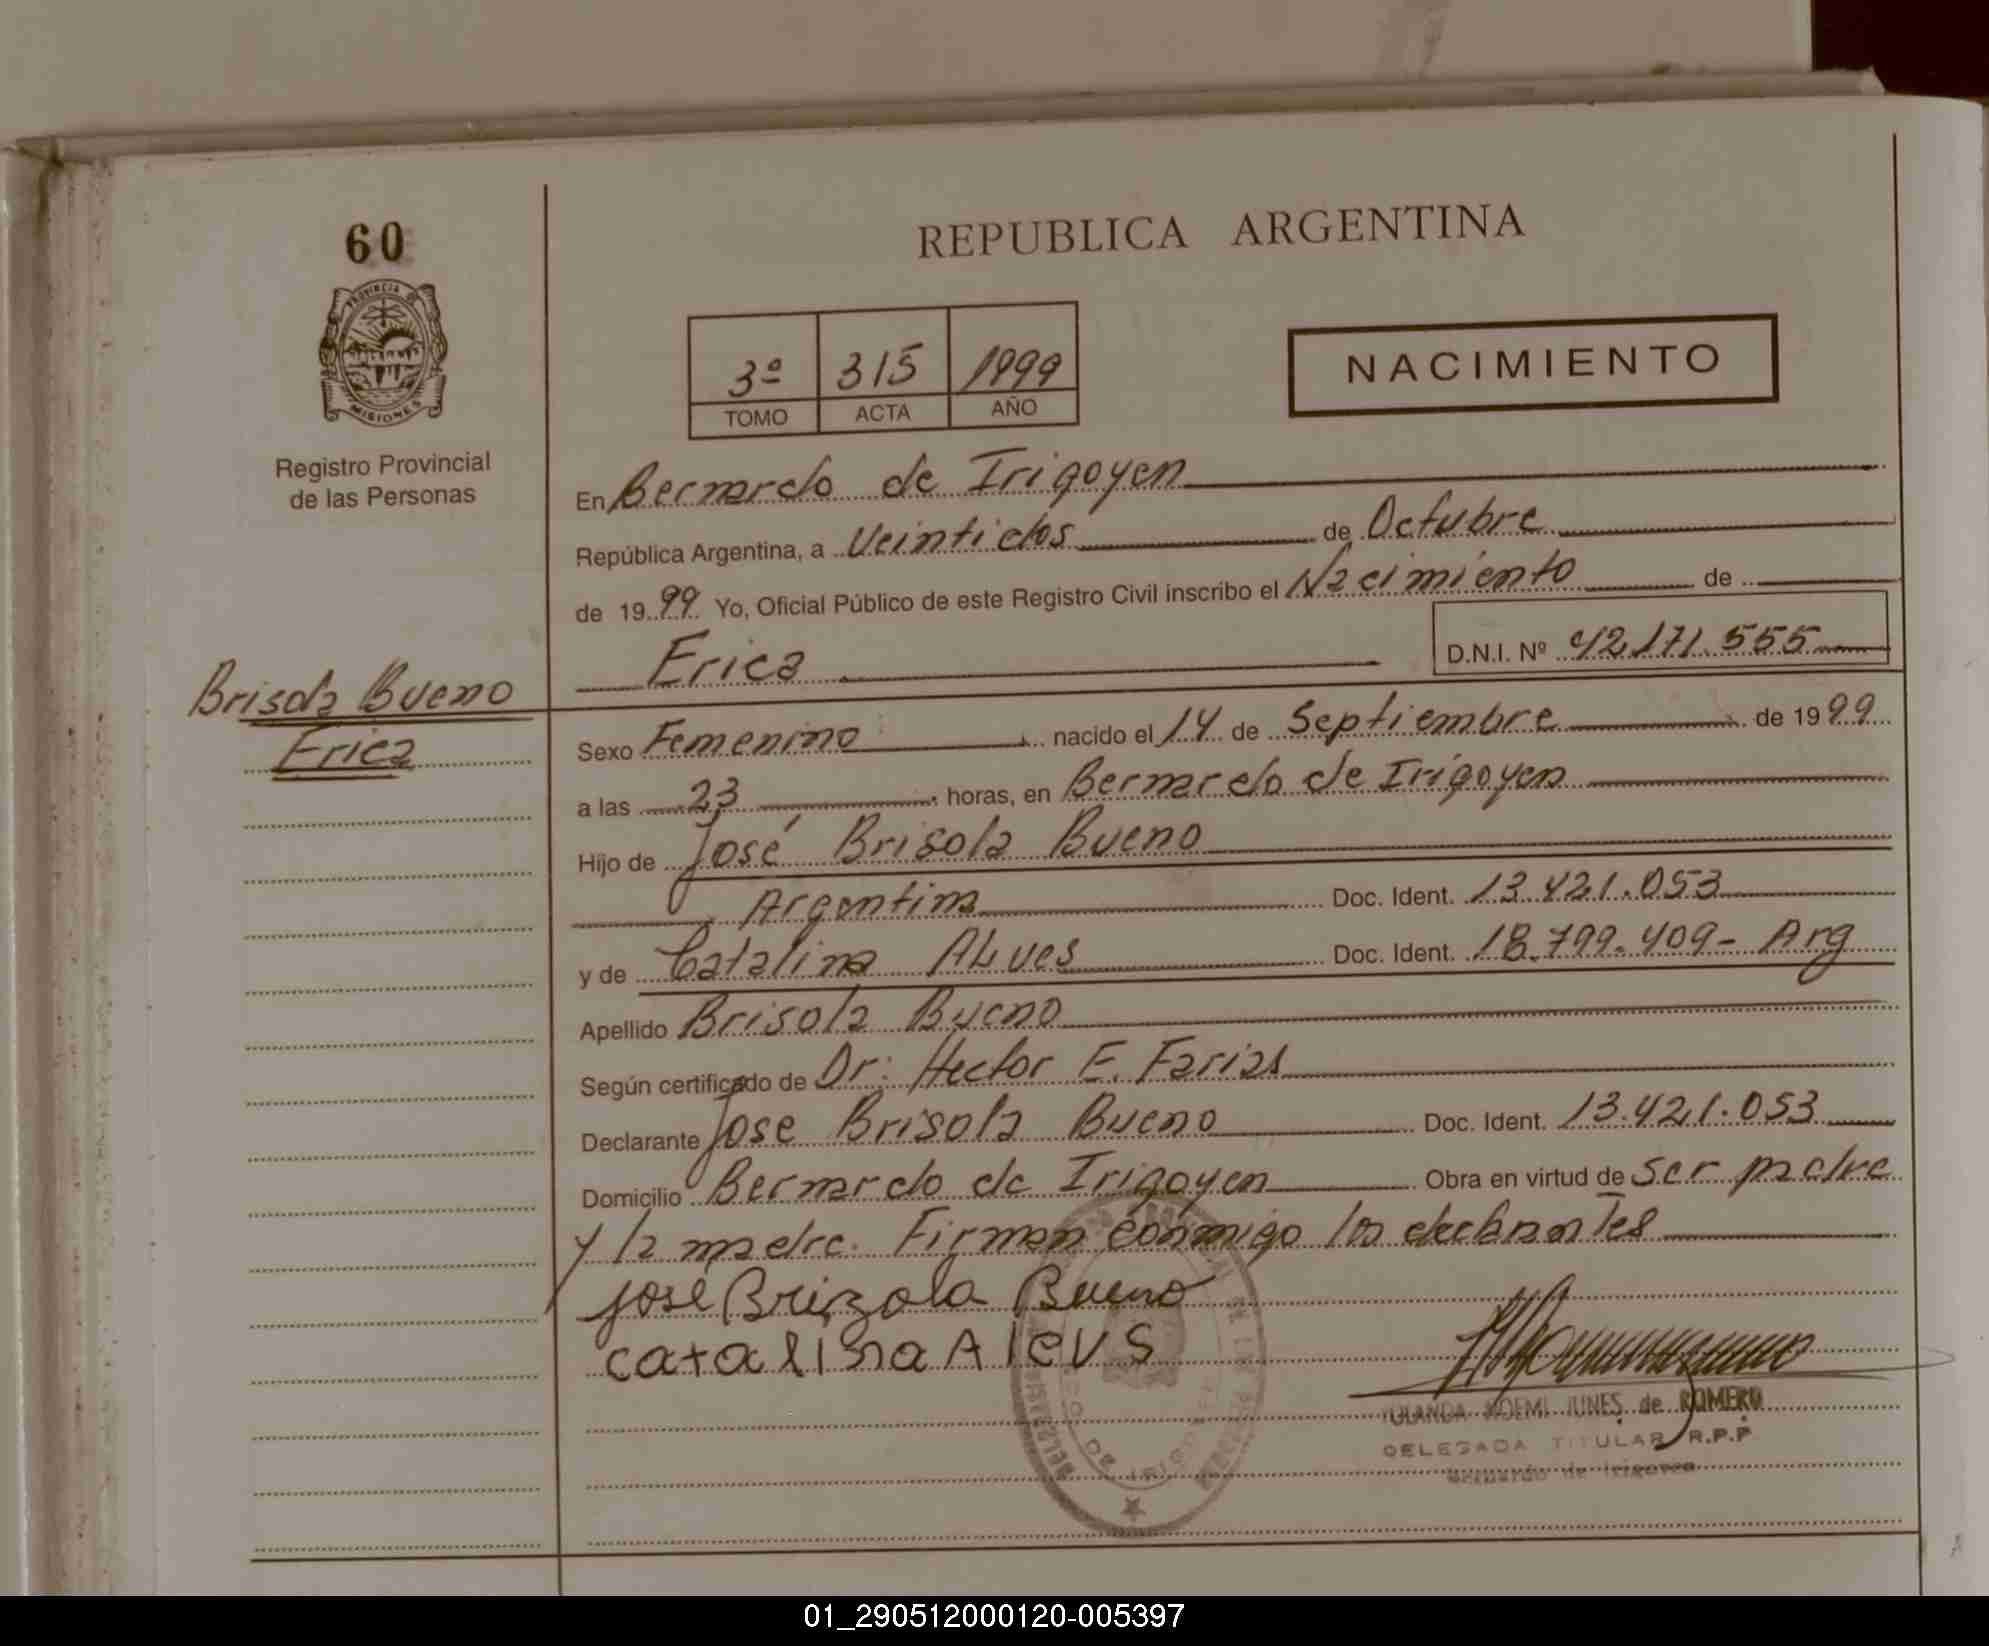 60
PROVINCIA DE
MISIONES
Registro Provincial
de las Personas
Brisola Bueno
Erica
REPUBLICA ARGENTINA
3º 315 1999
TOMO ACTA AÑO
NACIMIENTO
En Bernardo de Irigoyen
República Argentina, a Veintidos de Octubre
de 19 99 Yo, Oficial Público de este Registro Civil inscribo el Nacimiento de
Erica D.N.I. Nº 42.171.555
Sexo Femenino nacido el 14 de Septiembre de 19 99
a las 23 horas, en Bernardo de Irigoyen
Hijo de José Brisola Bueno
Argentina Doc. Ident. 13.421.053
y de Catalina ALves Doc. Ident. 18.799.409- Arg
Apellido Brisola Bueno
Según certificado de Dr: Hector E. Farias
Declarante Jose Brisola Bueno Doc. Ident. 13.421.053
Domicilio Bernardo de Irigoyen Obra en virtud de ser padre
y la madre. Firman conmigo los declarantes
José Brizola Bueno
catalina Alevs
YOLANDA NOEMI JUNES de ROMERO
DELEGADA TITULAR R.P.P
Bernardo de Irigoyen
01_290512000120-005397